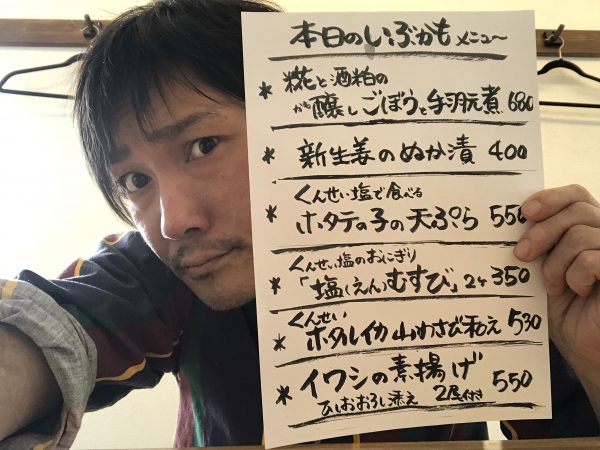 本日のいぶかも メニュー
* 糀と酒粕の
かも醸し ごぼうと手羽元煮 680
* 新生姜のぬか漬 400
* くんせい塩で食べる
ホタテの子の天ぷら 550
くんせい塩のおにぎり
* 「塩(えん)むすび」2ケ 350
くんせい
* ホタルイカ山わさび和え 530
* イワシの素揚げ 550
ひしおおろし添え 2尾付き